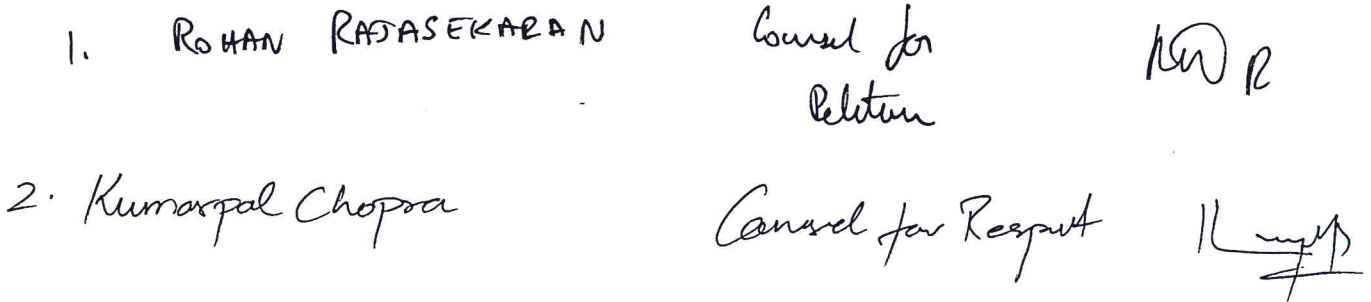 1. ROHAN RAJASEKARAN Counsel for
Petitioner
2. Kumarpal Chopra Counsel for Respondent